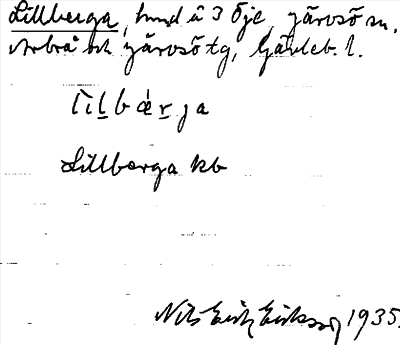 Lillberga, hmd å 3 Öje, Järvsö sn,
Arbrå och Järvsö tg, Gävleb. l.
Lillberga kb
Nils Erik Eriksson 1935.